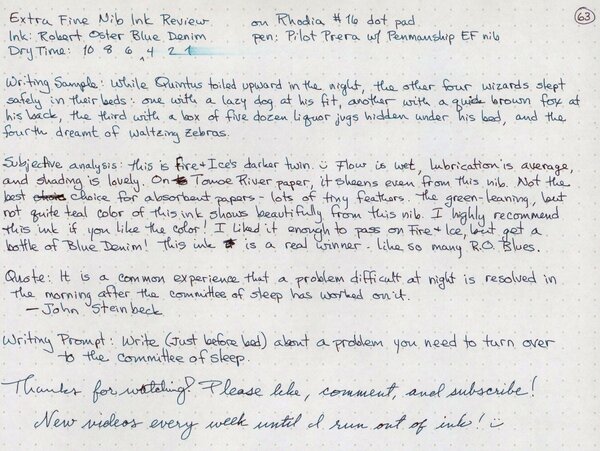 Extra Fine Nib Ink Review on Rhodia #16 dot pad 63
Ink: Robert Oster Blue Denim pen: Pilot Prera w/ Penmanship EF nib
Dry Time: 10 8 6 4 2 1
Writing Sample: While Quintus toiled upward in the night, the other four wizards slept
safely in their beds: one with a lazy dog at his fit, another with a quick brown fox at
his back, the third with a box of five dozen liquor jugs hidden under his bed, and the
fourth dreamt of waltzing zebras.
Subjective analysis: This is Fire & Ice's darker twin. :) Flow is wet, lubrication is average,
and shading is lovely. On Tomoe River paper, it sheens even from this nib. Not the
best choice for absorbent papers - lots of tiny feathers. The green-leaning, but
not quite teal color of this ink shows beautifully from this nib. I highly recommend
this ink if you like the color! I liked it enough to pass on Fire & Ice, but get a
bottle of Blue Denim! This ink is a real winner - like so many R.O. Blues.
Quote: It is a common experience that a problem difficult at night is resolved in
the morning after the committee of sleep has worked on it.
- John Steinbeck
Writing Prompt: Write (just before bed) about a problem you need to turn over
to the committee of sleep.
Thanks for watching! Please like, comment, and subscribe!
New videos every week until I run out of ink! :)